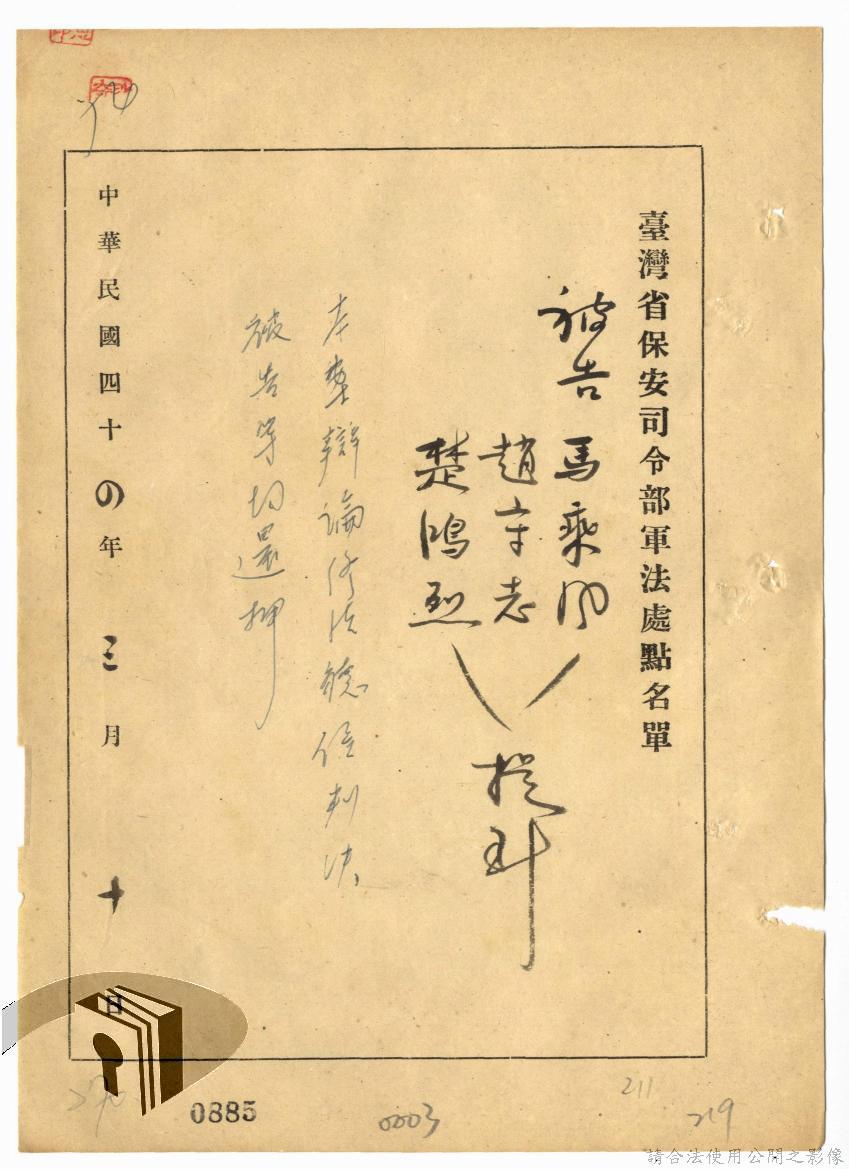 臺灣省保安司令部軍法處點名單
被告 馬乘風
趙守志
楚鴻烈
提到
本案辯論終結聽候判決
被告等均還押
中華民國四十四年三月十日
0885
0003
211
219
請合法使用公開之影像